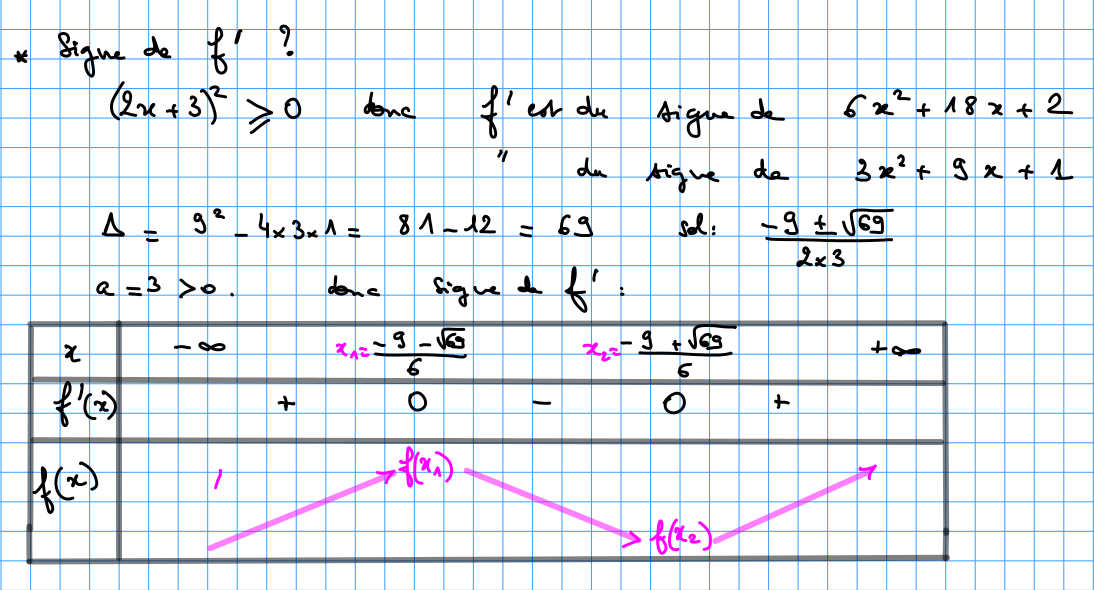 * Signe de f' ?
(2x+3)² ⩾ 0 donc f' est du signe de 6x² + 18x + 2
" du signe de 3x² + 9x + 1
Δ = 9² - 4×3×1 = 81 - 12 = 69 sol: (-9 ± √69)/(2×3)
a = 3 > 0. donc signe de f' :
x -∞ x₁ = (-9 - √69)/6 x₂ = (-9 + √69)/6 +∞
f'(x) + 0 - 0 +
f(x) f(x₁)
f(x₂)